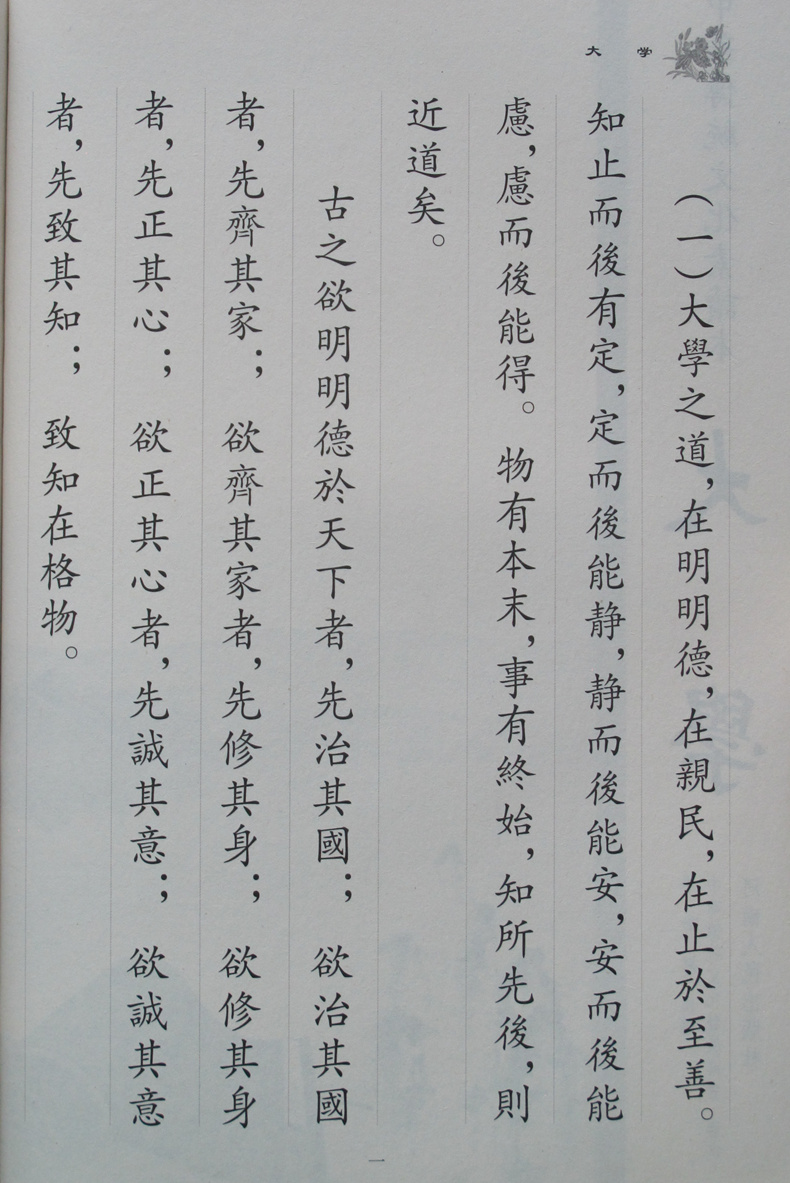 大学
（一）大學之道，在明明德，在親民，在止於至善。
知止而後有定，定而後能静，静而後能安，安而後能
慮，慮而後能得。物有本末，事有終始，知所先後，則
近道矣。
古之欲明明德於天下者，先治其國；欲治其國
者，先齊其家；欲齊其家者，先修其身；欲修其身
者，先正其心；欲正其心者，先誠其意；欲誠其意
者，先致其知；致知在格物。
一